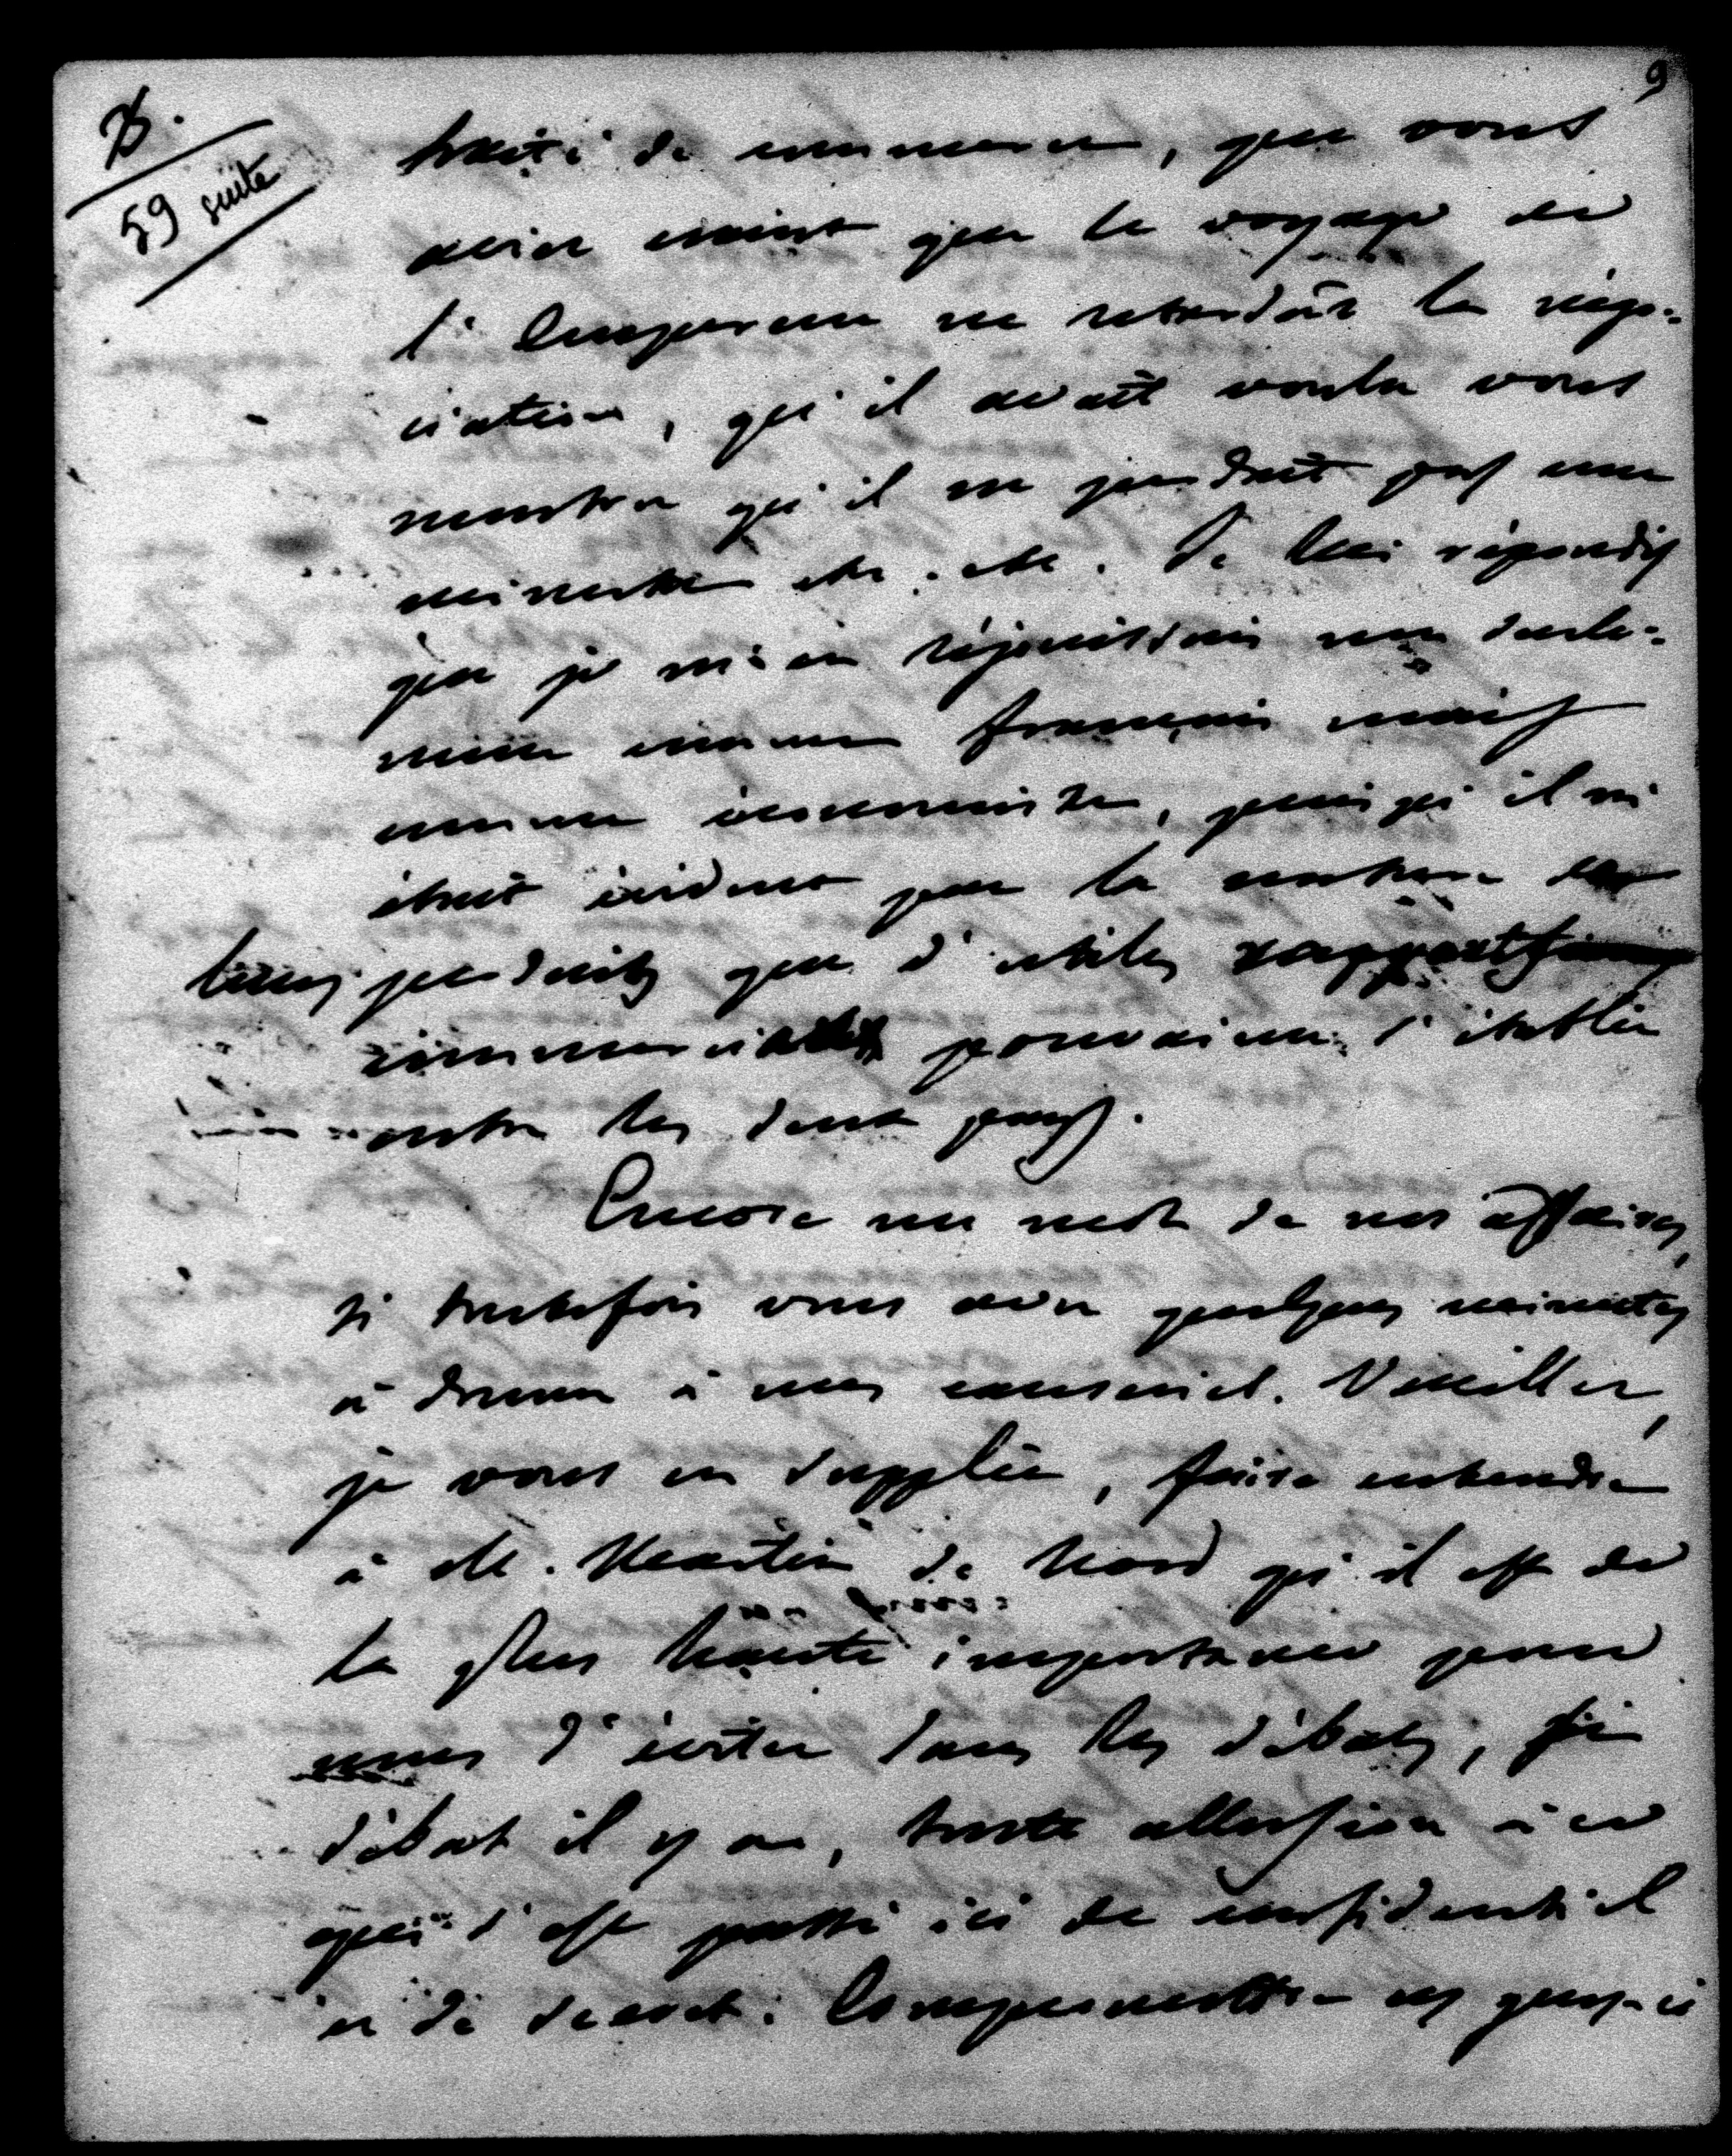 9
D.
59 suite
traité de commerce, que vous
aviez craint que le voyage de
l'Empereur ne retardât la négo-
ciation, qu'il avait voulu vous
montrer qu'il ne perdrait pas une
minute etc. etc. Je lui répondis
que je m'en réjouissais non seule-
ment comme français mais
comme économiste, puisqu'il m'
était évident par la nature de
leurs produits que d'utiles rapports
commerciaux pouvaient s'établir
entre les deux pays.
Encore un mot de nos affaires,
si toutefois vous avez quelques minutes
à donner à nos causeries. Veuillez,
je vous en supplie, faire entendre
à M. Martin du Nord qu'il est de
la plus haute importance pour
nous d'éviter dans les débats, si
débat il y a, toute allusion à ce
qui s'est passé ici de confidentiel
et de secret. Compromettre ces gens-ci